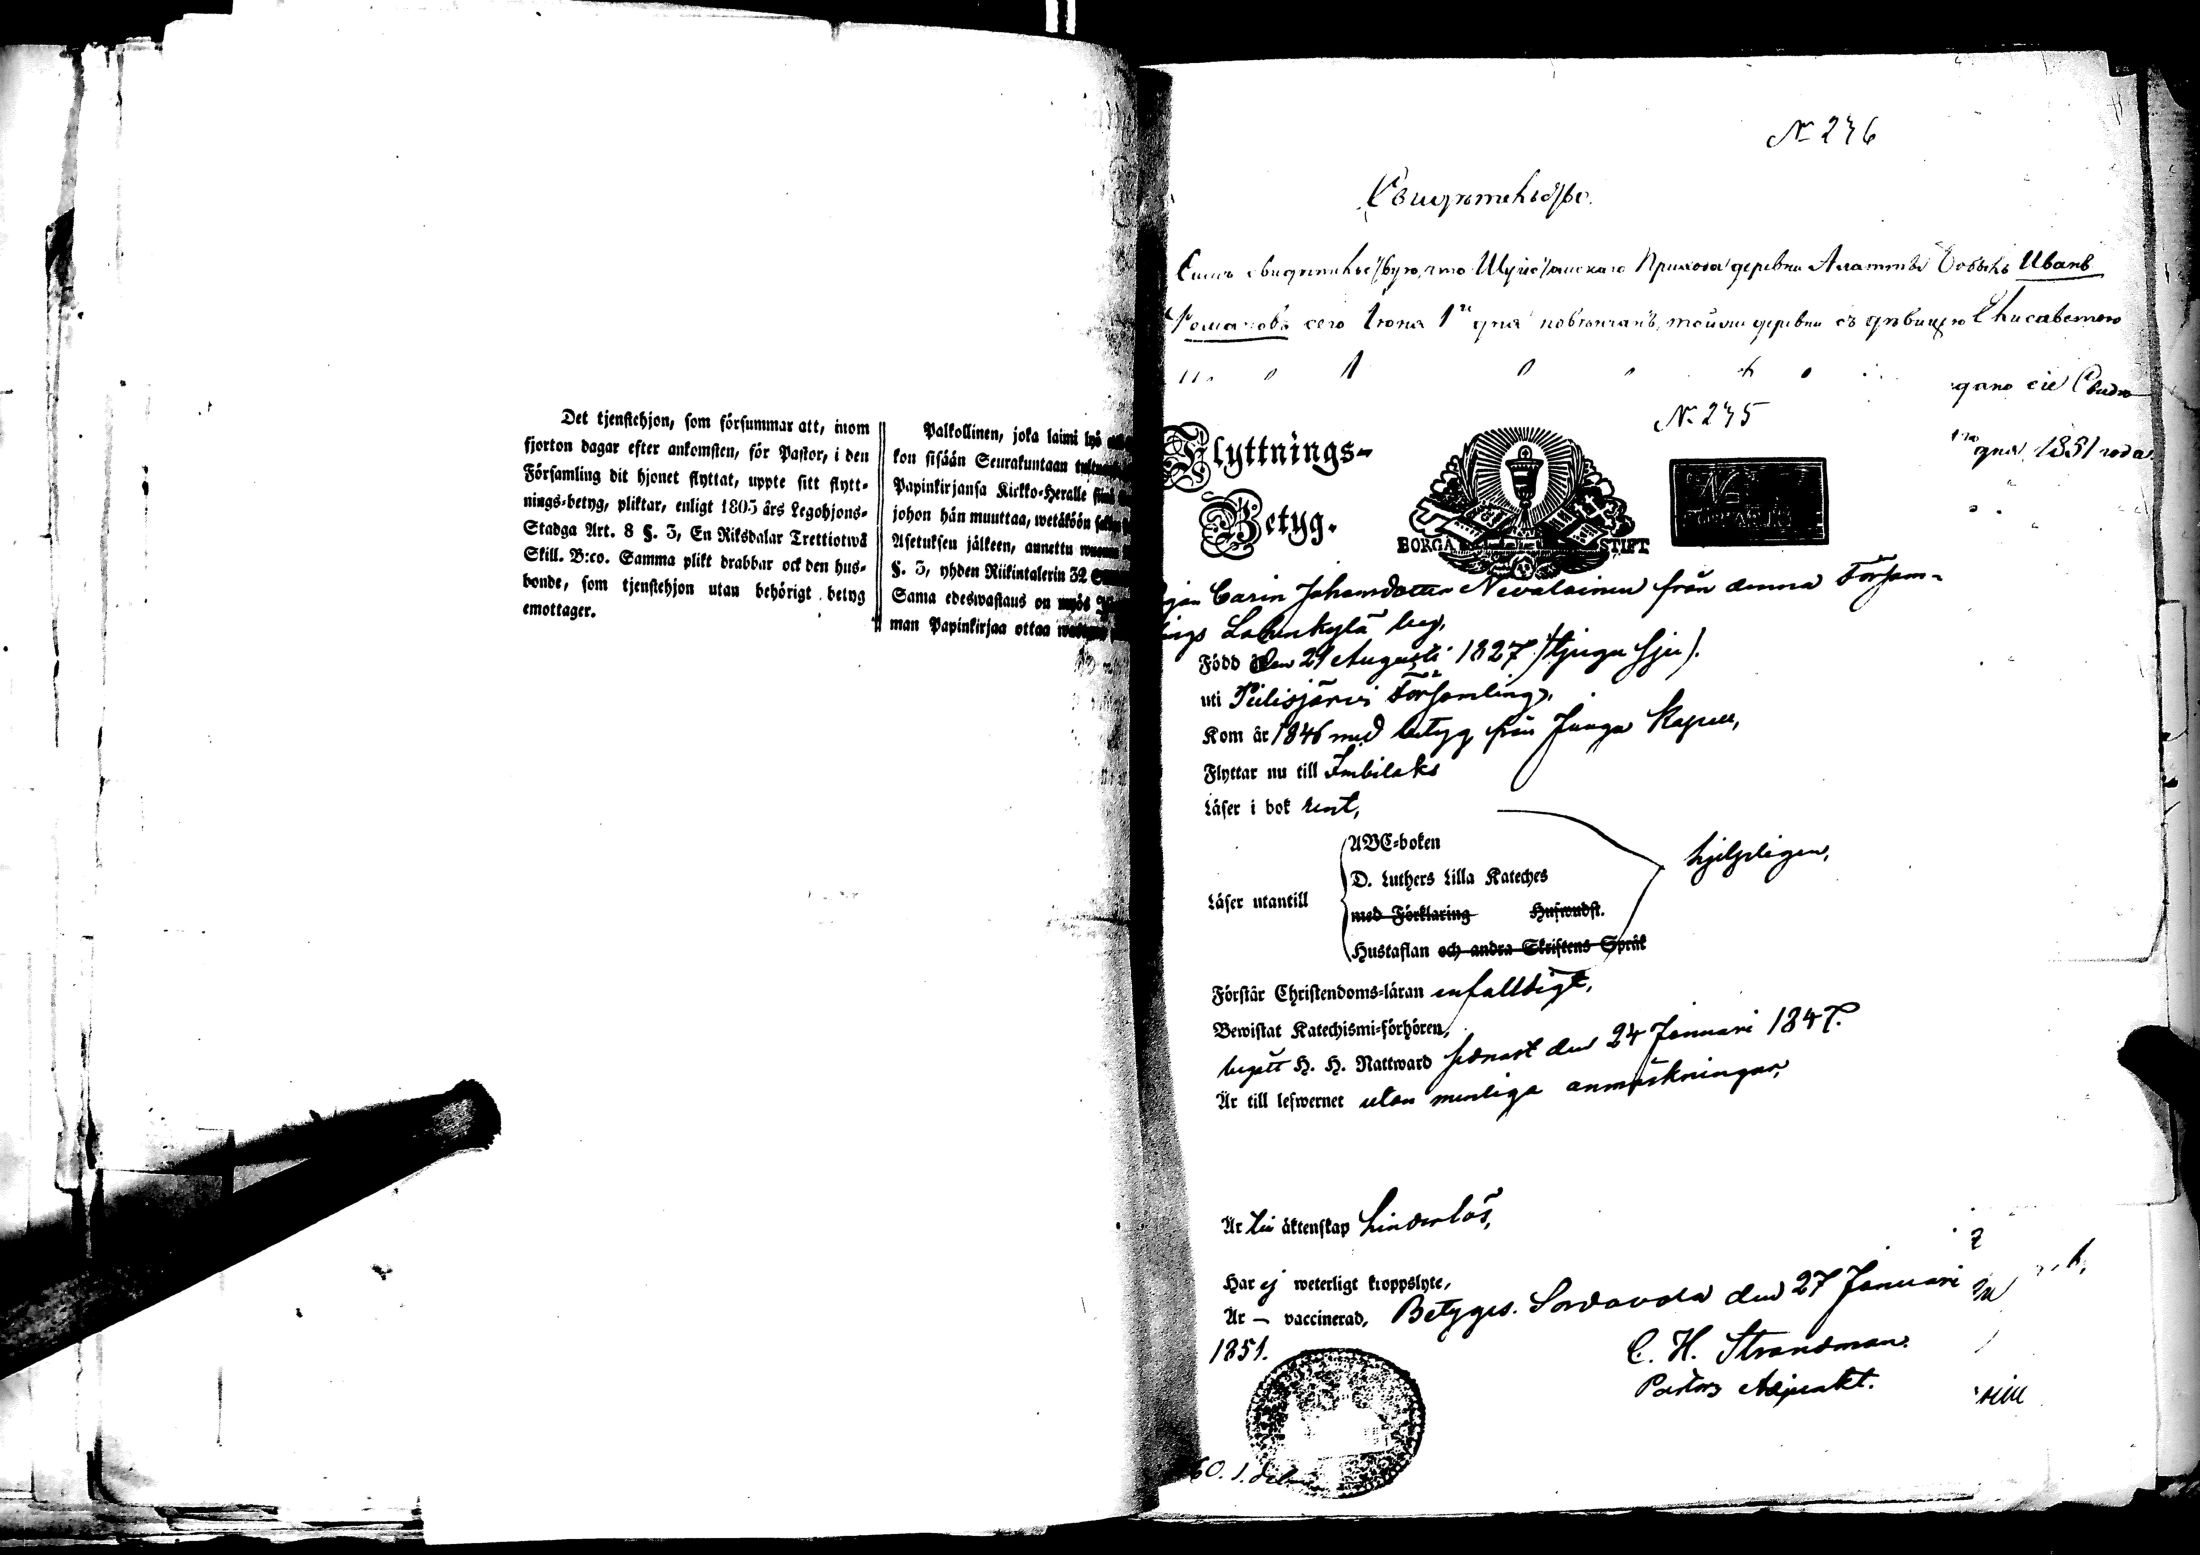 Det tjenstehjon, som försummar att, inom
fjorton dagar efter ankomsten, för Pastor, i den
Församling dit hjonet flyttat, uppte sitt flytt-
nings-betyg, pliktar, enligt 1805 års Legohjons-
Stadga Art. 8 §. 3, En Riksdalar Trettiotwå
Skill. B:co. Samma plikt drabbar ock den hus-
bonde, som tjenstehjon utan behörigt betyg
emottager.
Palkollinen, joka laimi lyö
kon sisään Seurakuntaan
Papinkirjansa Kirkko-Heralle
johon hän muuttaa, wetäköön
Asetuksen jälkeen, annettu
§. 3, yhden Riikintalerin 32
Sama edeswastaus on myös
man Papinkirjaa ottaa
№ 276
Свидѣтельство.
Симъ свидѣтельствую, что Шуйстамскаго Прихода деревни Алатту Бобыль Иванъ
Романовъ сего Іюня 1го дня повѣнчанъ, тойже деревни съ дѣвицею Елисаветою
дано сіе Свидѣ
дня 1851 года
№ 275
Flyttnings-
Betyg.
BORGÅ STIFT
Carin Johansdotter Nevalainen från denna Försam-
lings Lahenkylä by,
Född den 29 Augusti 1827 /tjugu sju/.
uti Pielisjärvi Församling,
Kom år 1846 med betyg från Juuga Kapell,
Flyttar nu till Imbilaks
Läser i bok rent,
ABC-boken
D. Luthers Lilla Kateches
hjelpligen,
Läser utantill
med Förklaring Huswudst.
Hustaflan och andra Skriftens Språk
Förstår Christendoms-läran enfalldigt,
Bewistat Katechismi-förhören,
begått H. H. Nattward senast den 24 Januari 1847.
Är till lefwernet utan menliga anmärkningar,
Är till äktenskap hinderlös,
Har ej weterligt kroppslyte,
Är — vaccinerad, Betygas. Sordavala den 27 Januari
1851.
C. H. Strandman.
Pastors Adjunkt.